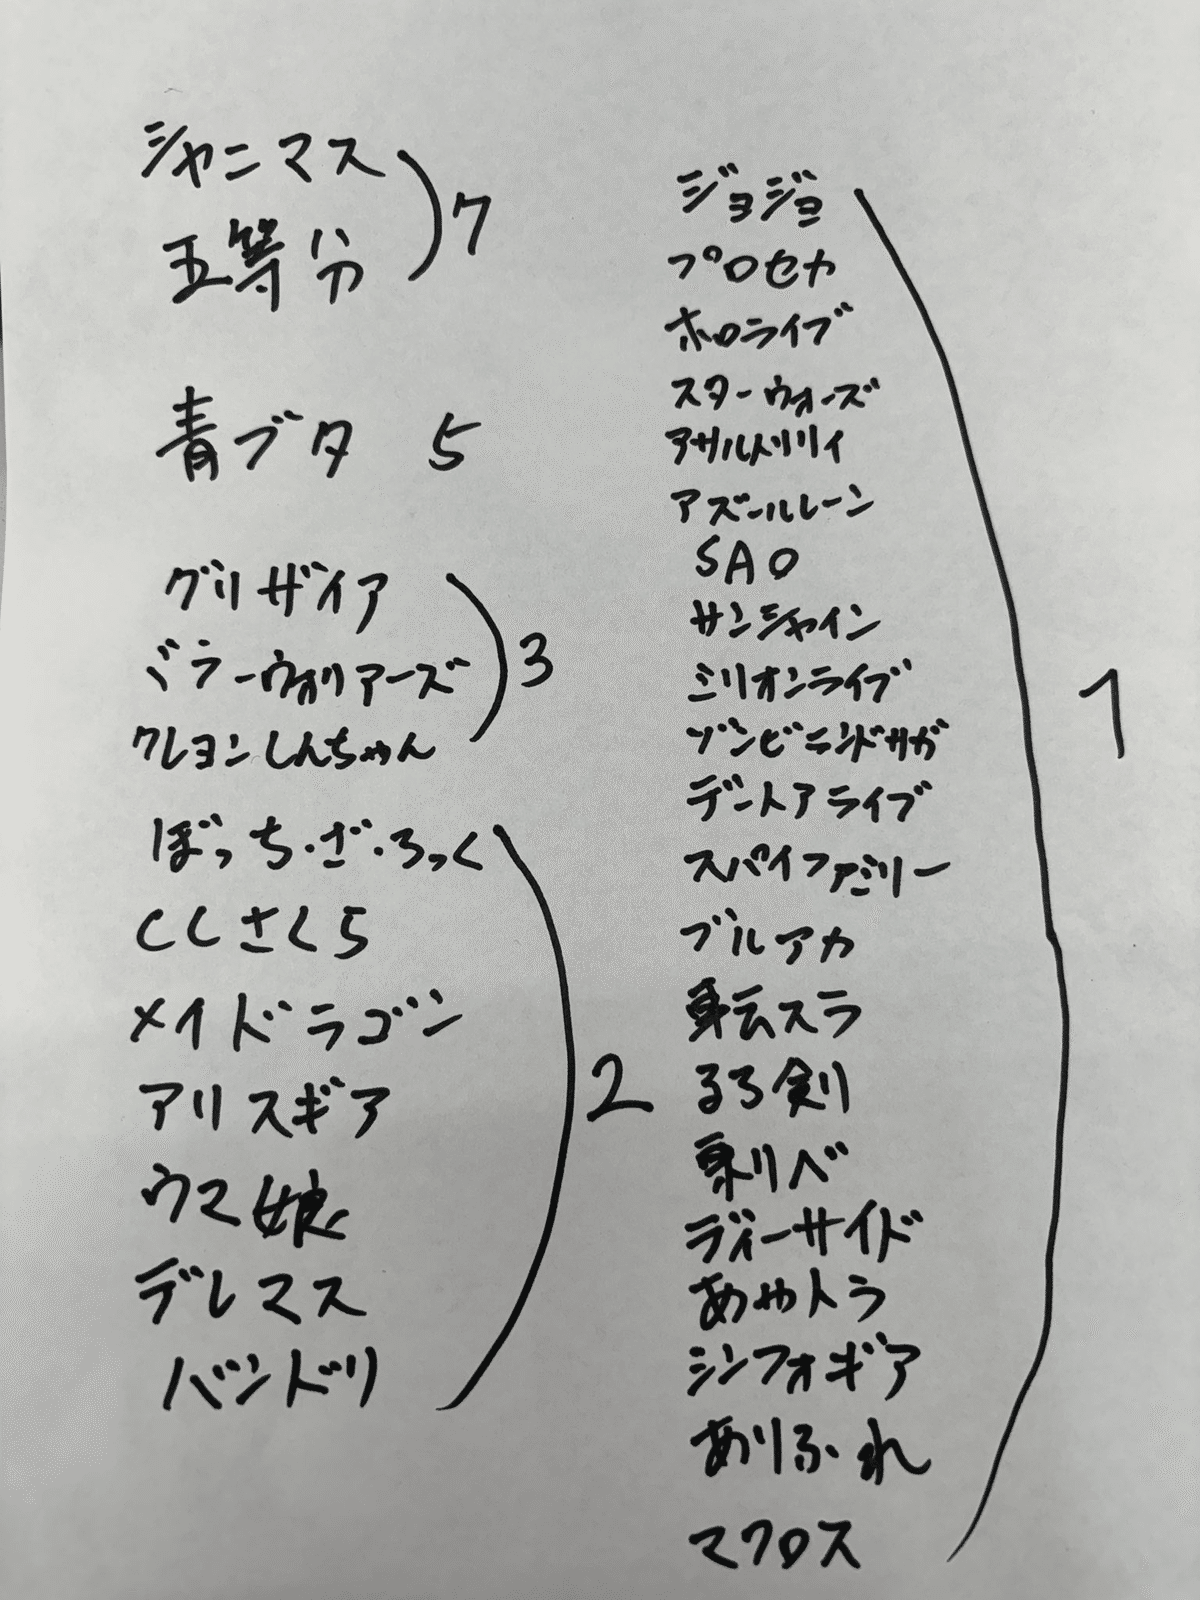 シャニマス
五等分
7
青ブタ 5
グリザイア
ミラーウォリアーズ
クレヨンしんちゃん
3
ぼっち・ざ・ろっく
CCさくら
メイドラゴン
アリスギア
ウマ娘
デレマス
バンドリ
2
ジョジョ
プロセカ
ホロライブ
スターウォーズ
アサルトリリィ
アズールレーン
SAO
サンシャイン
ミリオンライブ
ゾンビニンドサガ
デートアライブ
スパイファミリー
ブルアカ
転スラ
るろ剣
東リベ
ディーサイド
あやトラ
シンフォギア
ありふれ
マクロス
1